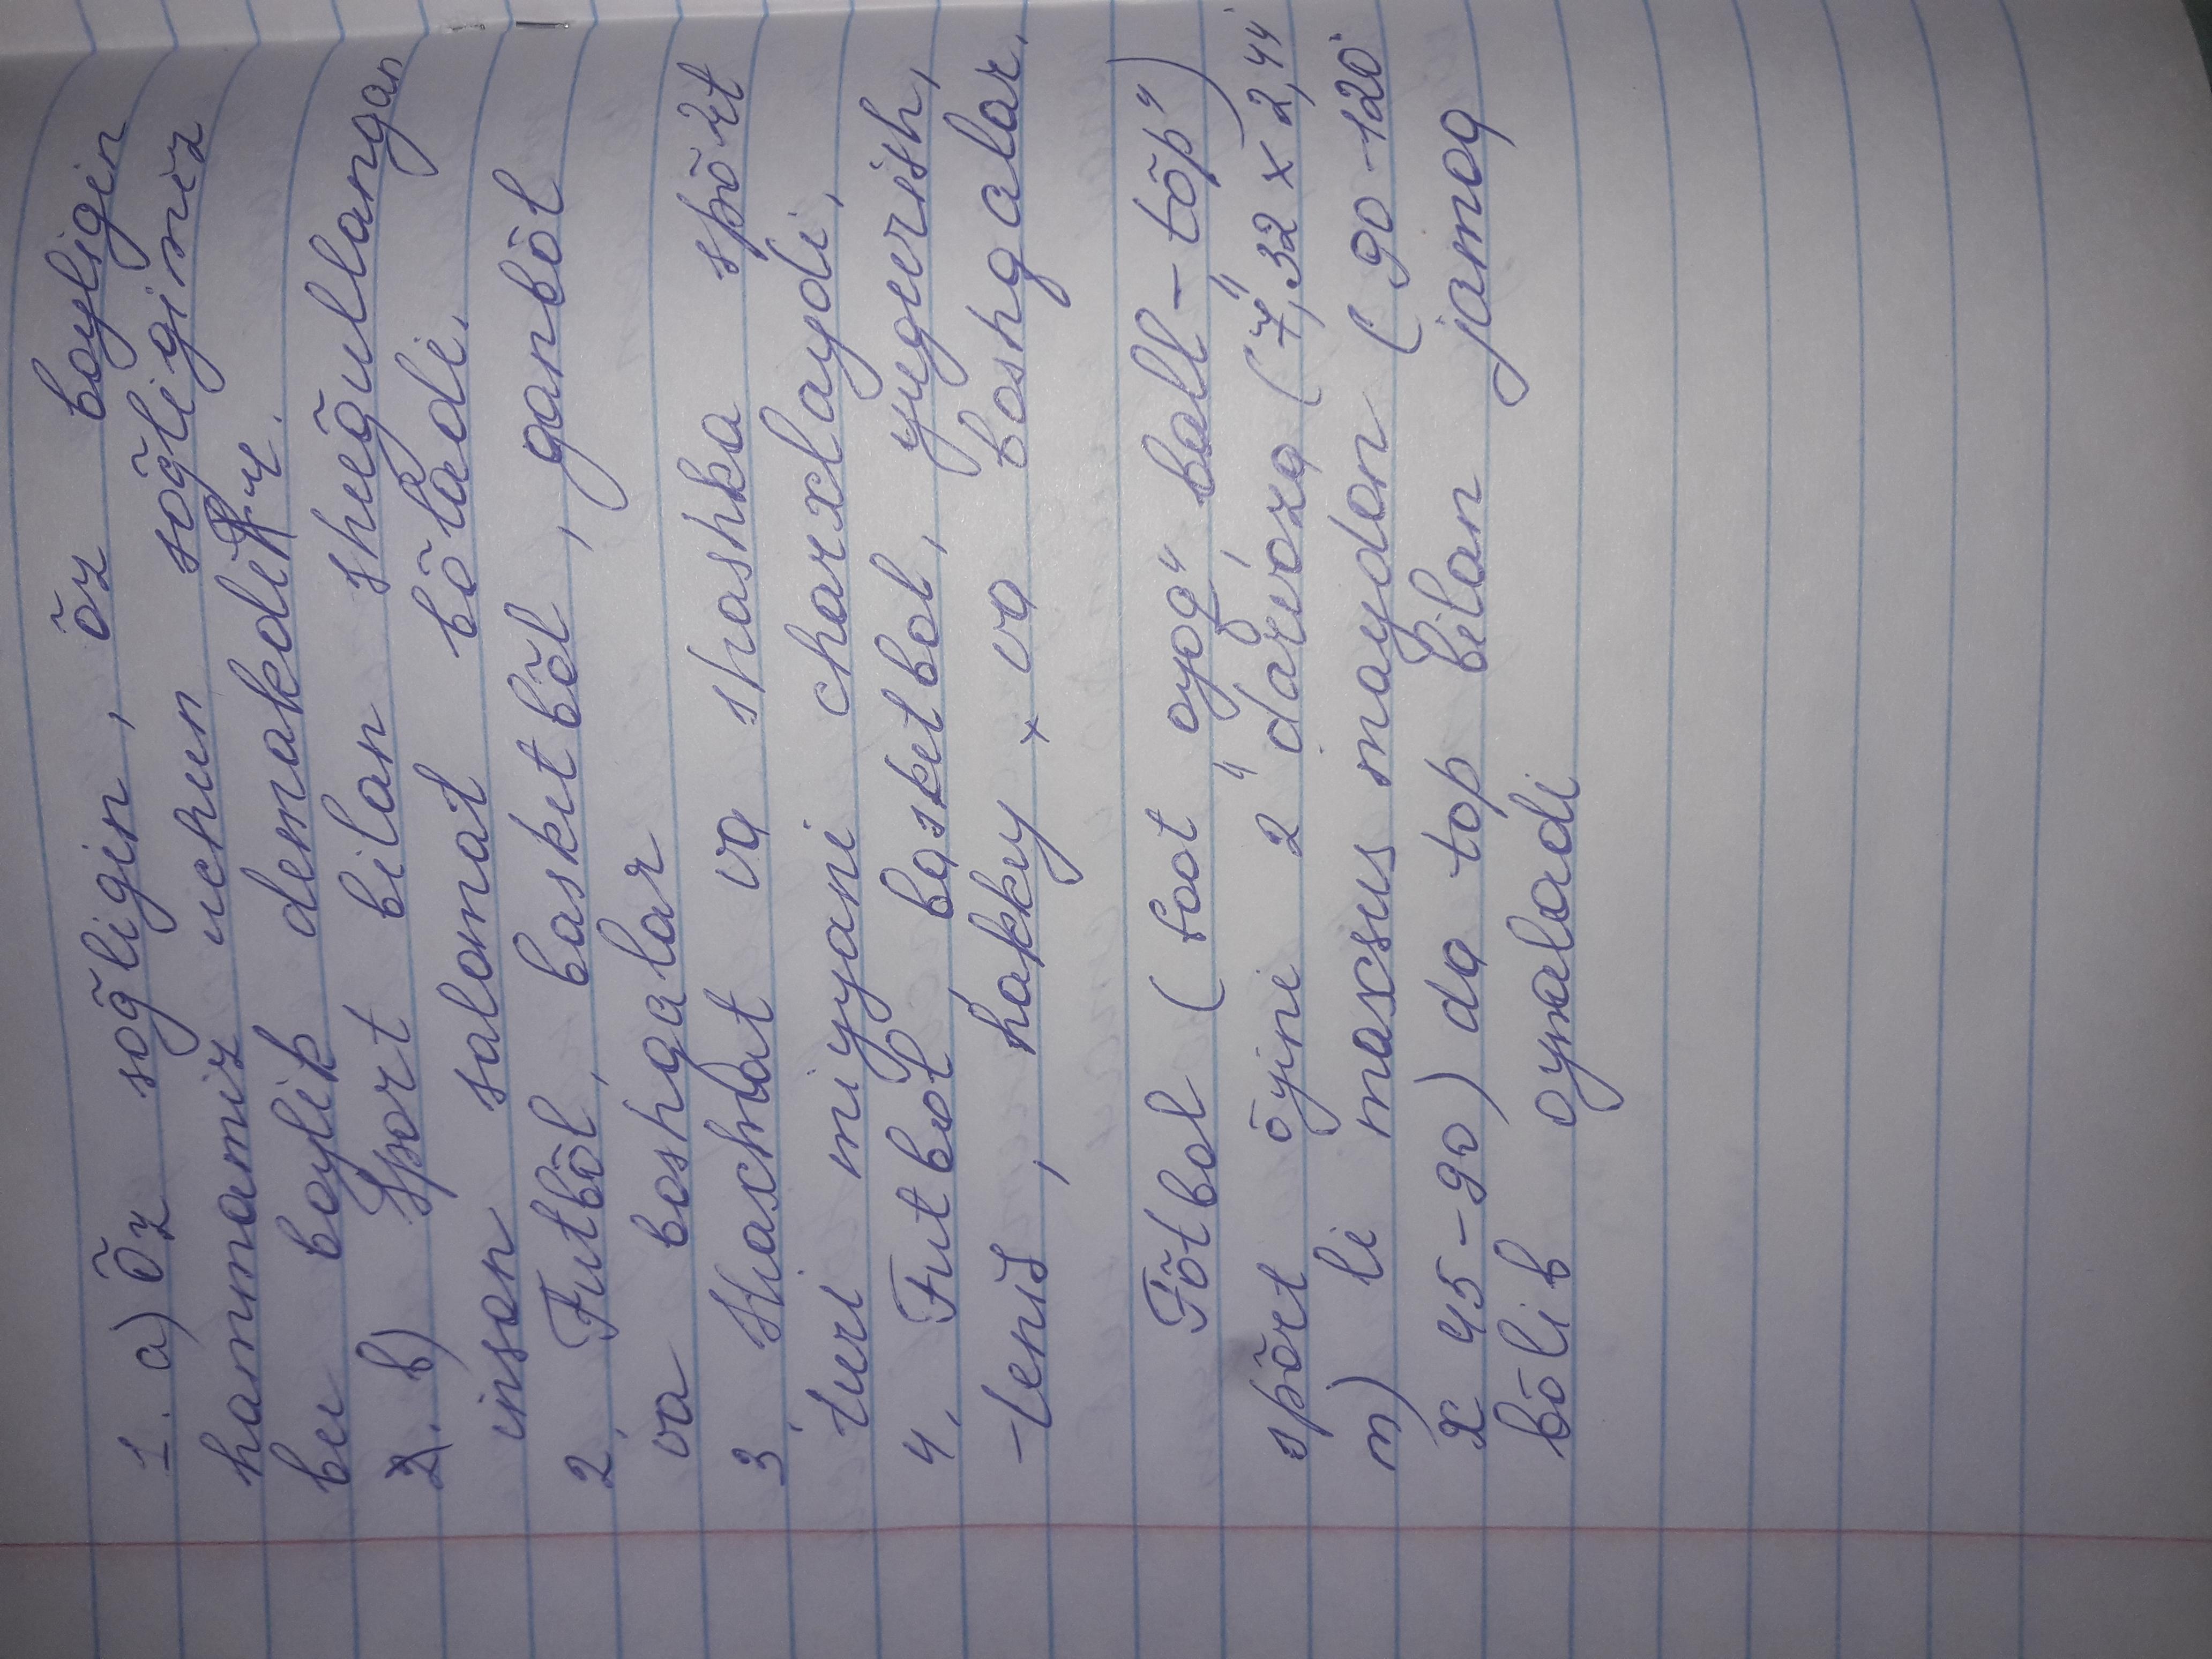 1. a) Õz sõgligin, õz boyligin
hammamiz uchun sõgligimiz
bu boylik demakdir.
2. b) Sport bilan shuğullangan
inson salomat bõladi.
2. Futbõl, basketbõl, ganbõl
va boshqalar
3 Shaxmat va shashka spõrt
turi miyyani charxlaydi,
4. Futbol basketbol, yugurish,
tenis, hakkey x va boshqalar.
Fõtbol (foot oyoq" ball-tõp")
spõrt õyini 2 "darvoza ("7,32 x 2,44"
m) li maxsus maydon ( 90-120
x 45-90) da top bilan jamoq
bõlib oynaladi